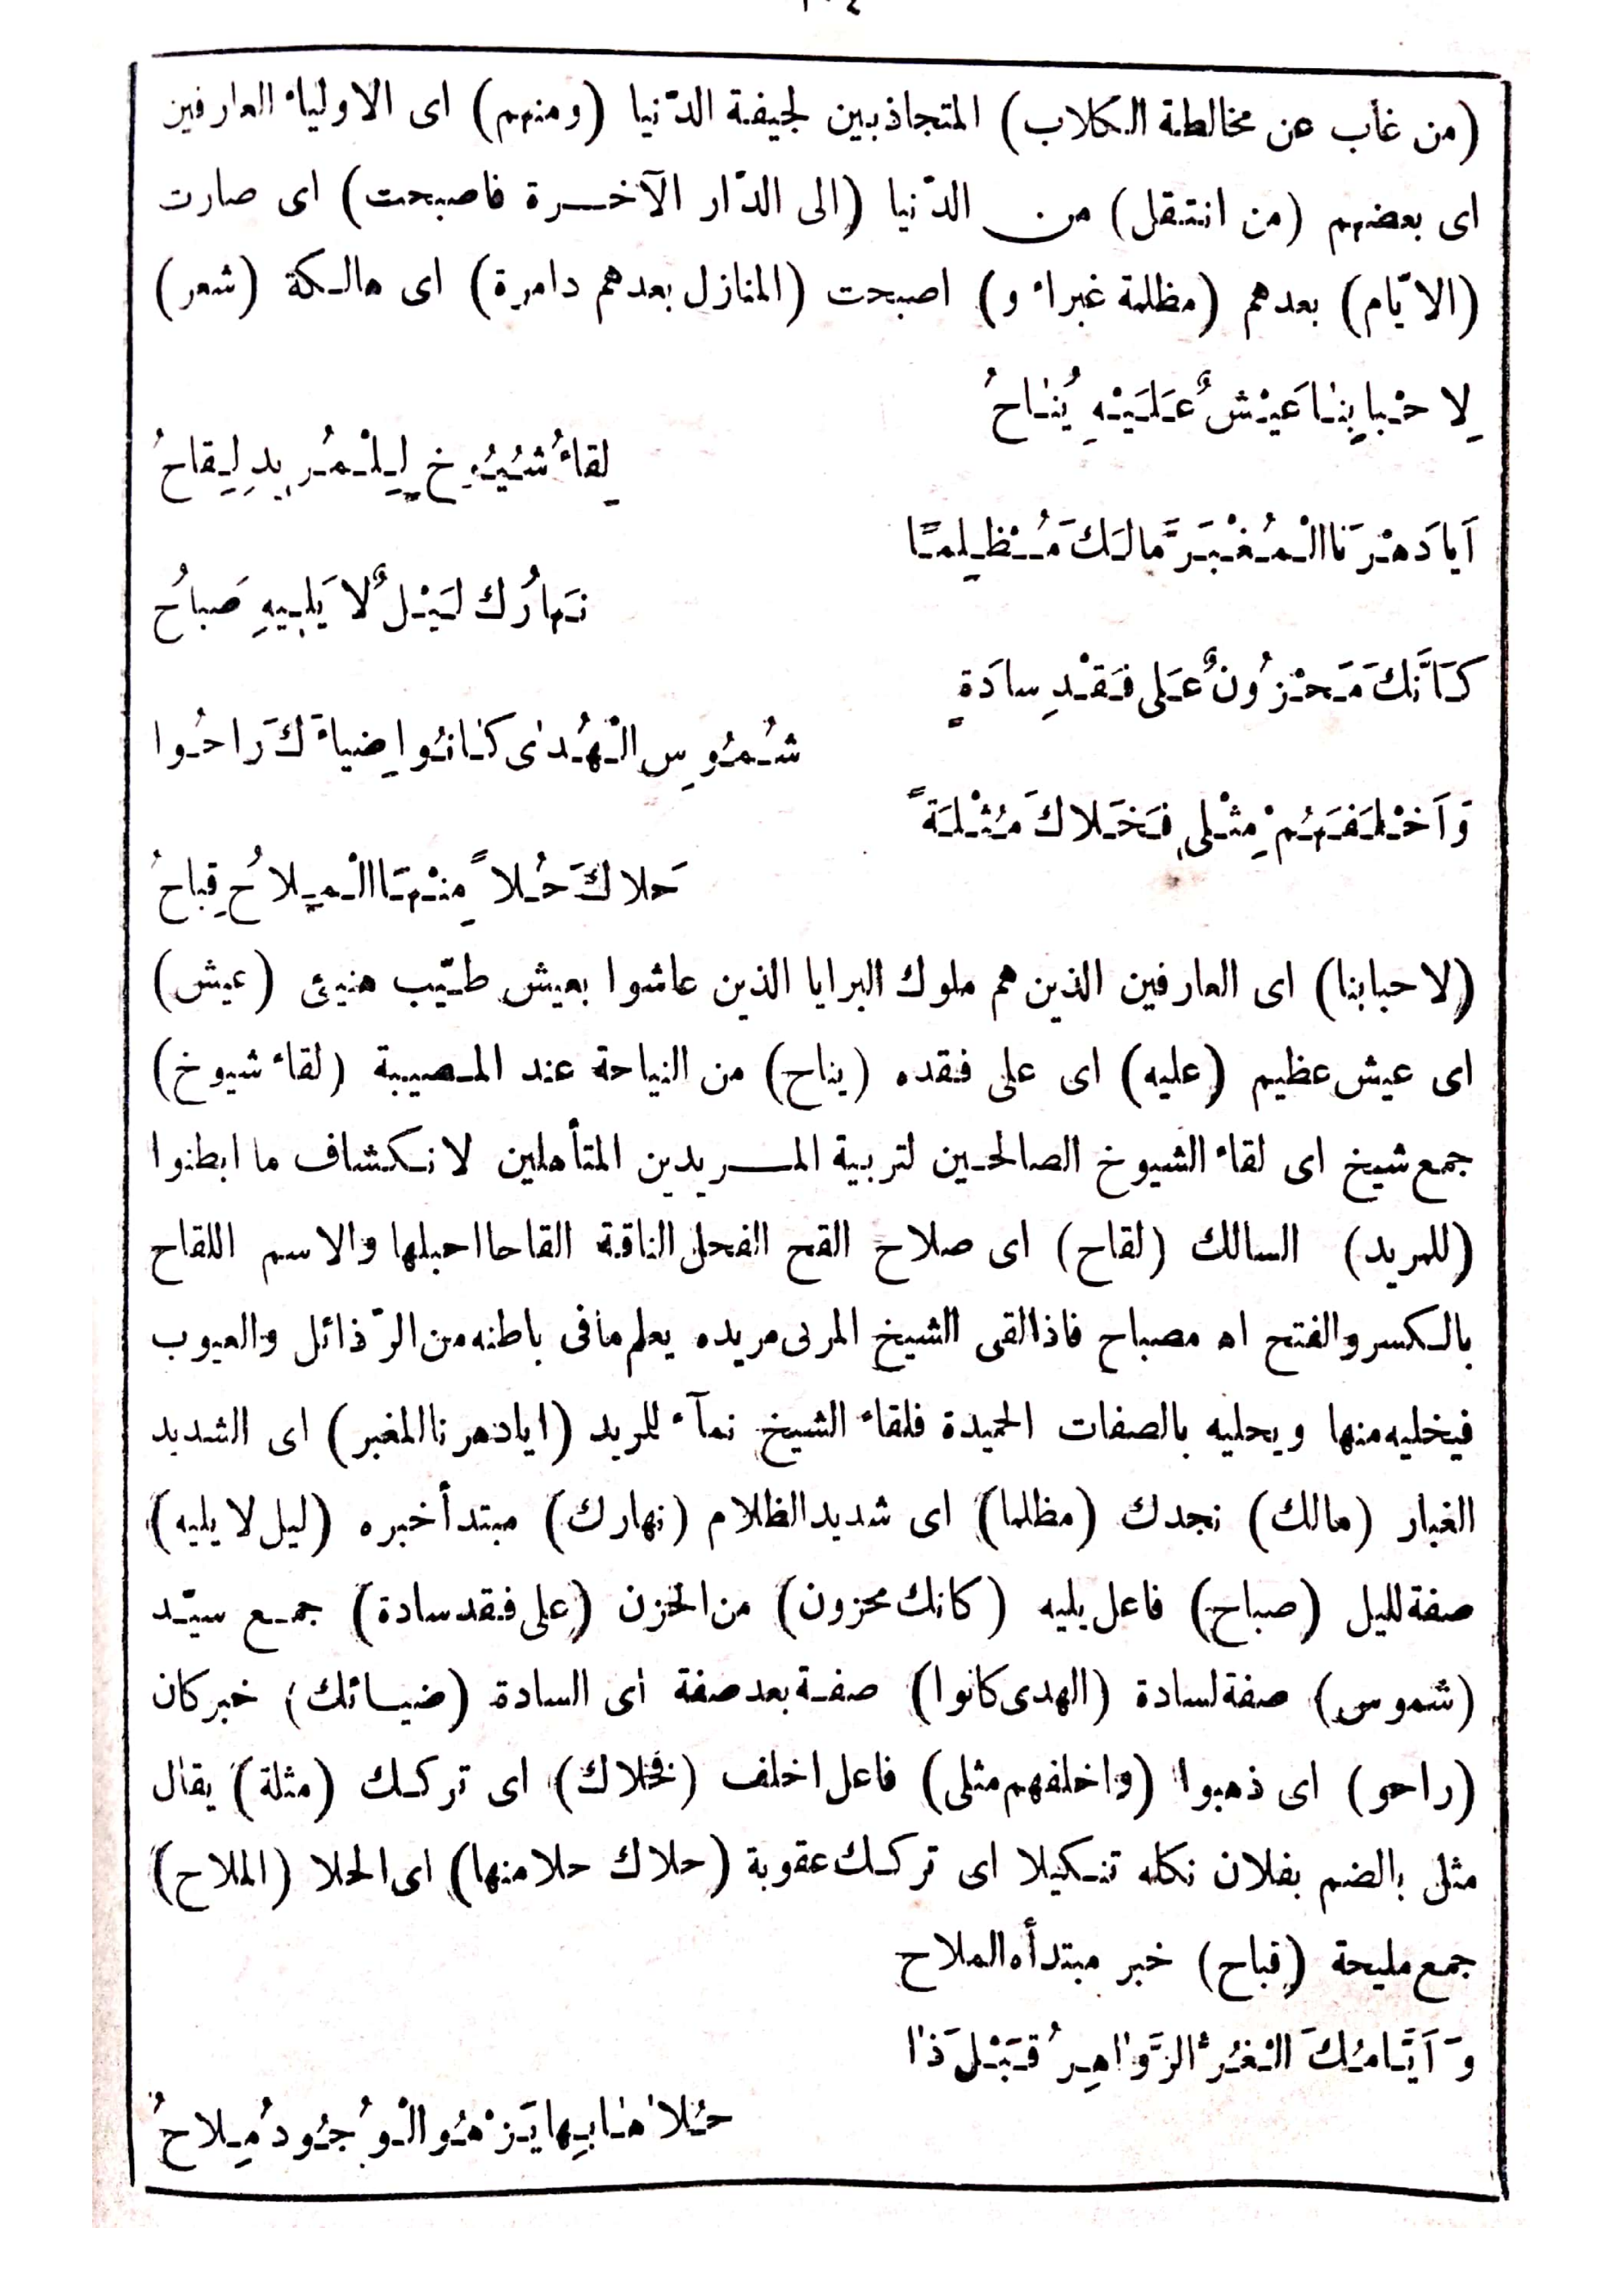 (من غاب عن مخالطة الكلاب) المتجاذبين لجيفة الدّنيا (ومنهم) اى الاولياء العارفين
اى بعضهم (من انتقل) من الدّنيا (الى الدّار الآخرة فاصبحت) اى صارت
(الايّام) بعدهم (مظلمة غبراء و) اصبحت (المنازل بعدهم دامرة) اى هالكة (شعر)
لِاحْبابِنٰا عَيْشٌ عَلَيْهِ يُنٰاحُ
لِقاءُ شُيُوخٍ لِلْمُرِيدِ لِقاحُ
اَيا دَهْرَنا الْمُغْبَرَّ مالَكَ مُظْلِمًا
نَهارُك لَيْلٌ لا يَلِيهِ صَباحُ
كَاَنَّكَ مَحْزُونٌ عَلى فَقْدِ سادَةٍ
شُمُوسِ الْهُدٰى كٰانُوا ضِياءَكَ رَاحُوا
وَاَخْلَفَهُمْ مِثْلِى فَخَلاكَ مُثْلَةً
حَلاكَ حُلاً مِنْهَا الْمِلاحُ قِباحُ
(لاحبابنا) اى العارفين الذين هم ملوك البرايا الذين عاشوا بعيش طيّب هنيئ (عيش)
اى عيش عظيم (عليه) اى على فقده (يناح) من النياحة عند المصيبة (لقاء شيوخ)
جمع شيخ اى لقاء الشيوخ الصالحين لتربية المريدين المتأهلين لانكشاف ما ابطنوا
(للمريد) السالك (لقاح) اى صلاح القح الفحل الناقة القاحا احبلها والاسم اللقاح
بالكسر والفتح اه مصباح فاذا لقى الشيخ المربى مريده يعلم ما فى باطنه من الرّذائل والعيوب
فيخليه منها ويحليه بالصفات الحميدة فلقاء الشيخ نمآء للريد (ايا دهرنا المغبر) اى الشديد
الغبار (مالك) نجدك (مظلما) اى شديد الظلام (نهارك) مبتدأ خبره (ليل لا يليه)
صفة لليل (صباح) فاعل يليه (كانك محزون) من الحزن (على فقد سادة) جمع سيّد
(شموس) صفة لسادة (الهدى كانوا) صفة بعد صفة اى السادة (ضيائك) خبر كان
(راحو) اى ذهبوا (واخلفهم مثلى) فاعل اخلف (فخلاك) اى تركك (مثلة) يقال
مثل بالضم بفلان نكله تنكيلا اى تركك عقوبة (حلاك حلا منها) اى الحلا (الملاح)
جمع مليحة (قباح) خبر مبتدأه الملاح
وَاَيَّامُكَ الْغُرُّ الزَّوٰاهِرُ قَبْلَ ذٰا
حُلاهٰا بِها يَزْهُو الْوُجُودُ مِلاحُ